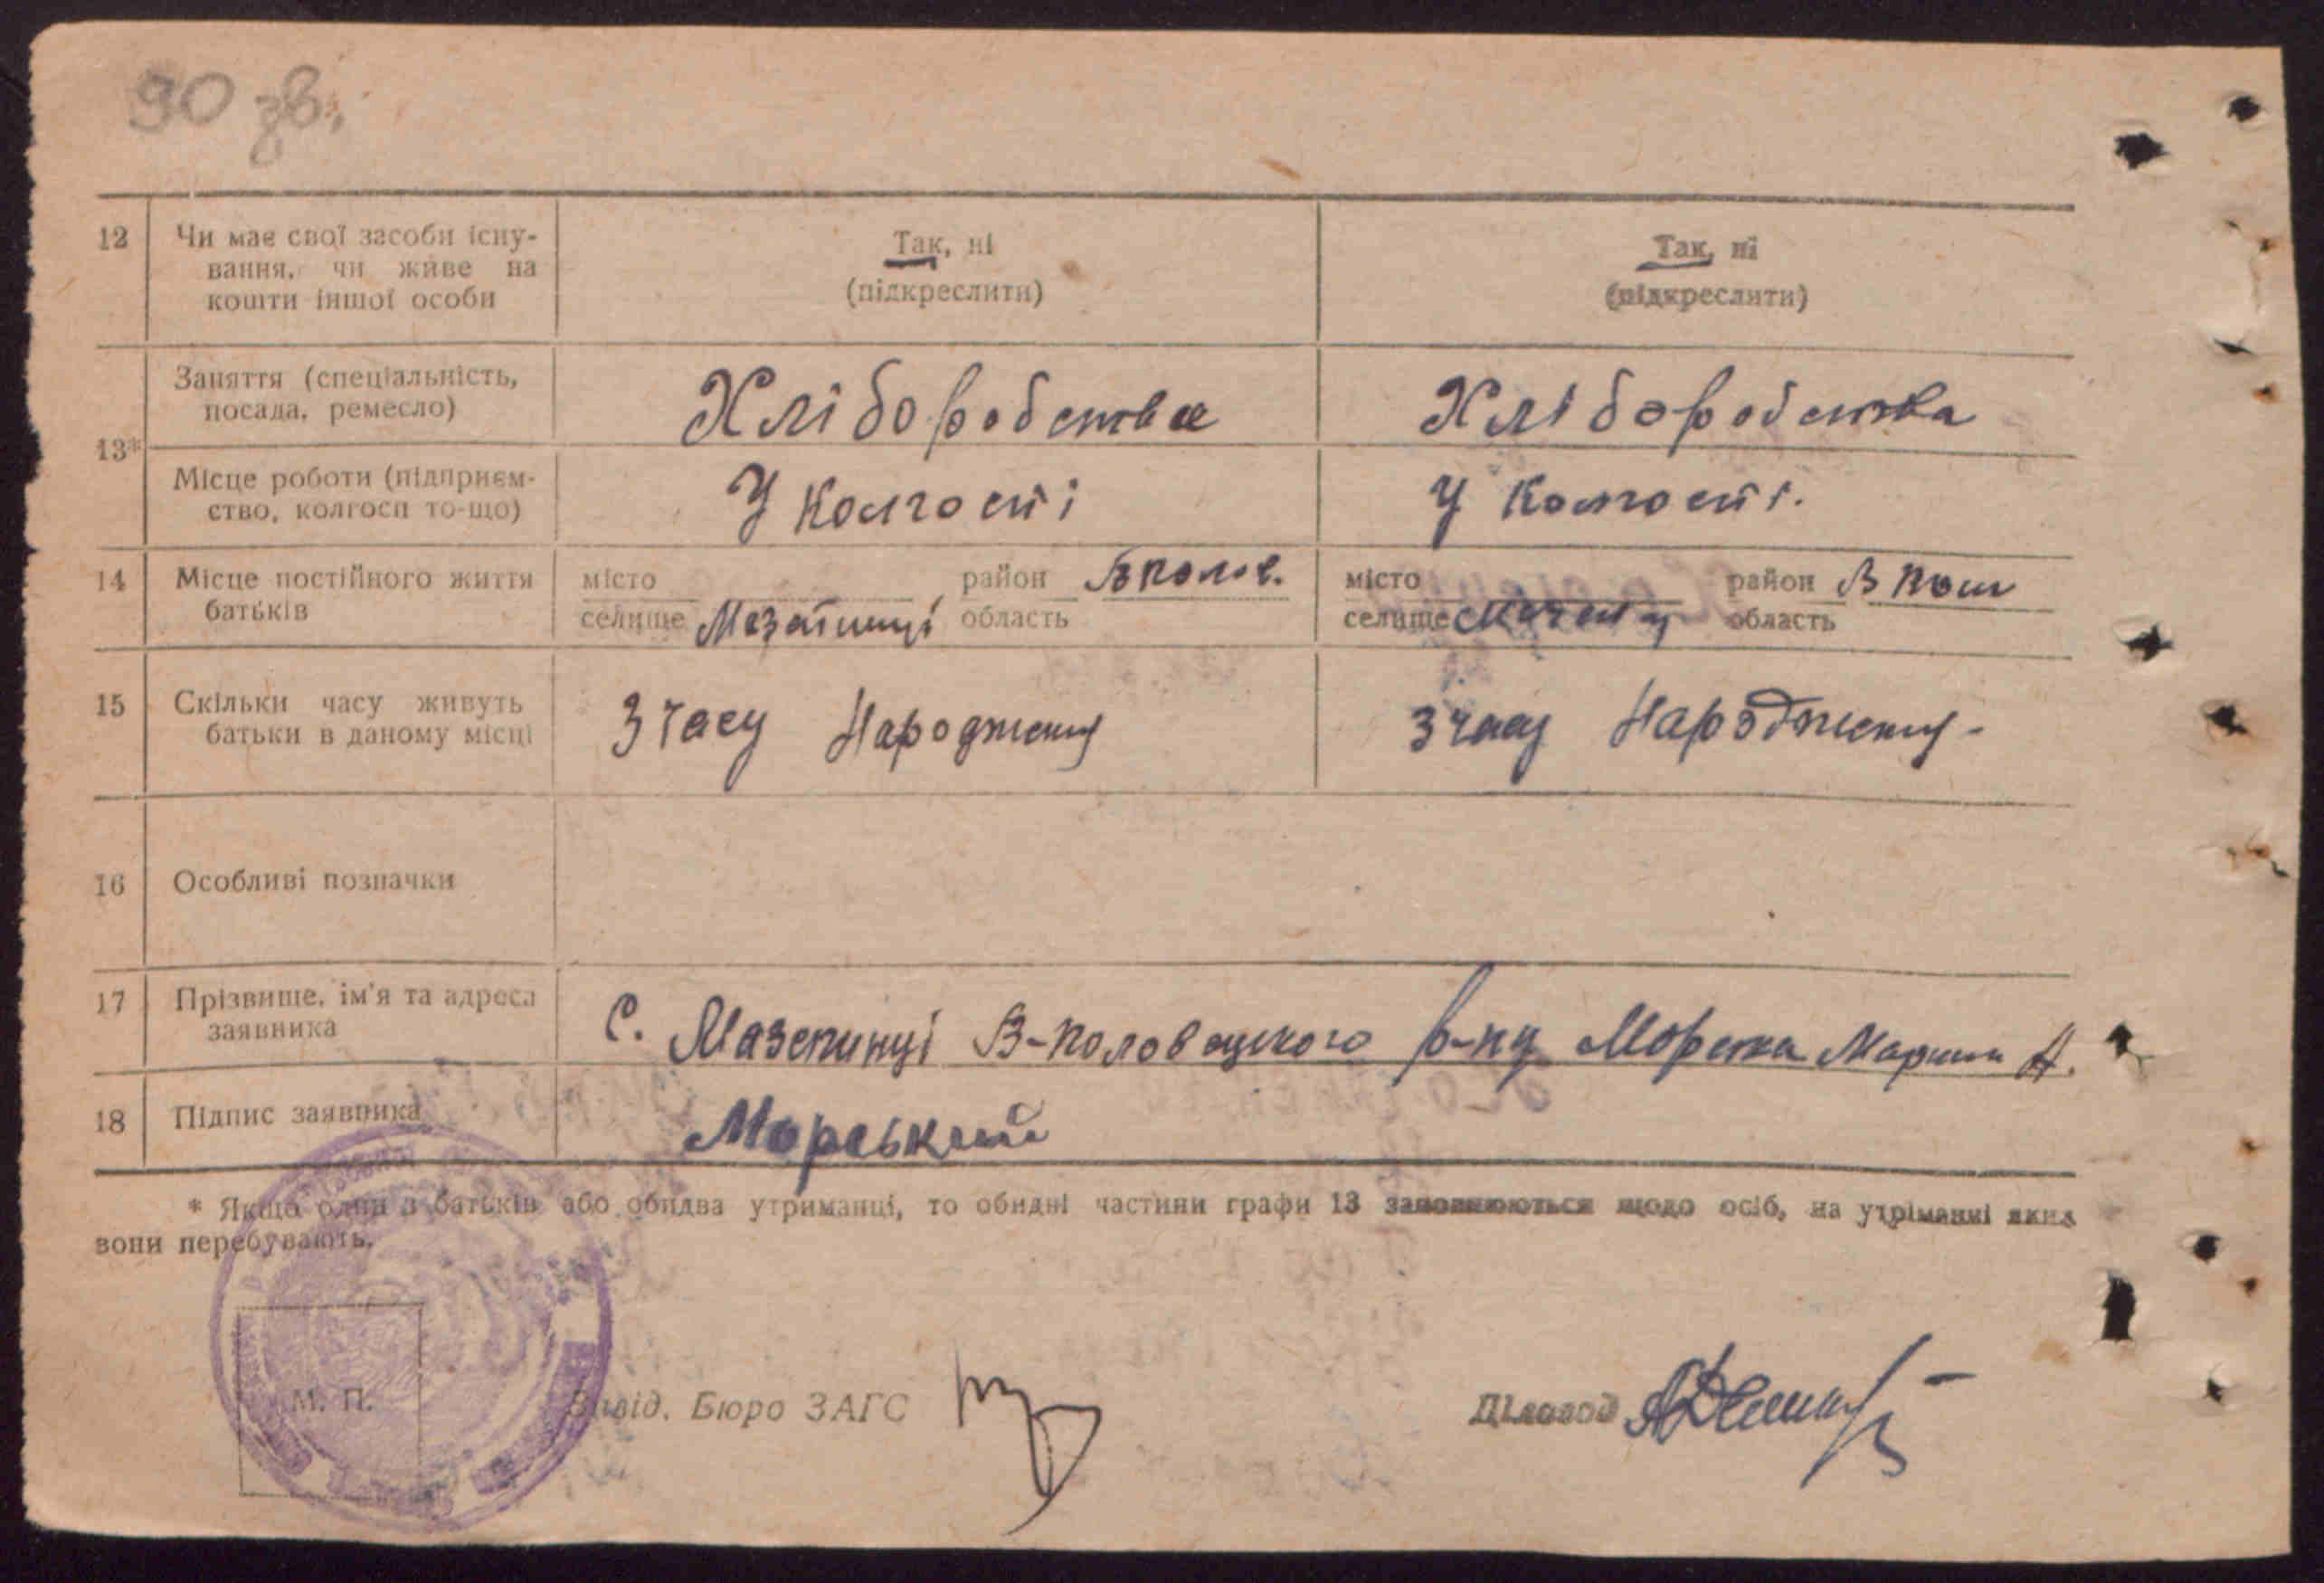 90 зв.
12 Чи має свої засоби існу-
вання, чи живе на
кошти іншої особи
Так, ні
(підкреслити)
Так, ні
(підкреслити)
13*
Заняття (спеціальність,
посада, ремесло)
Хліборобства
Хліборобства
Місце роботи (підприєм-
ство, колгосп то-що)
У Колгоспі
У Колгоспі.
14 Місце постійного життя
батьків
місто
селище Мазепинці
район В полов.
область
місто
селище
район В
область
15 Скільки часу живуть
батьки в даному місці
З часу Народження
З часу Народження -
16 Особливі позначки
17 Прізвище, ім'я та адреса
заявника
С. Мазепинці В-Половецкого р-ну
18 Підпис заявника
Морський
* Якщо один з батьків або обидва утриманці, то обидні частини графи 13 заповнюються щодо осіб, на утріманні яких
вони перебувають.
М. П.
Завід. Бюро ЗАГС
Діловод